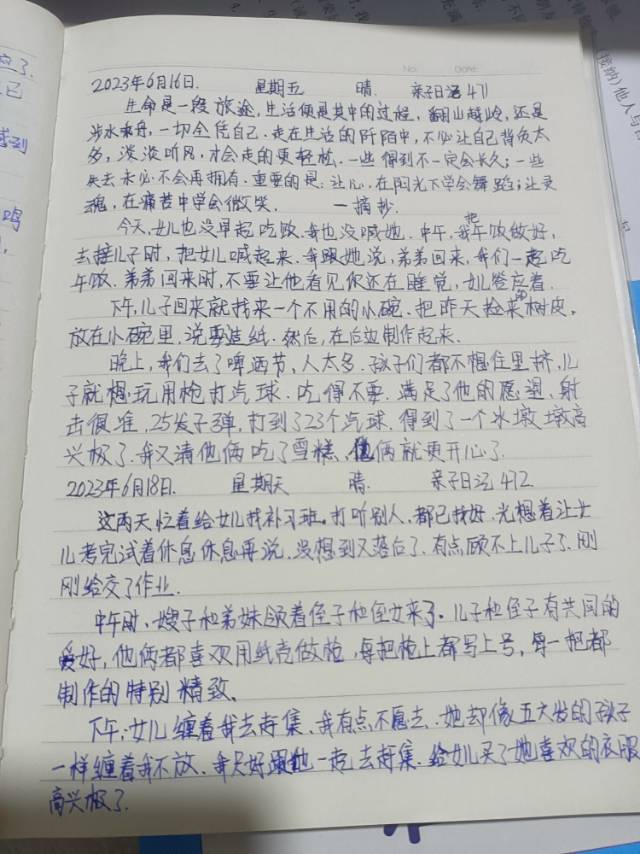 No. Date.
2023年6月16日. 星期五 晴 亲子日记 471
生命是一段旅途, 生活便是其中的过程, 翻山越岭, 还是
涉水乘舟, 一切全凭自己. 走在生活的阡陌中, 不必让自己背负太
多, 淡淡听风, 才会走的更轻松. 一些得到不一定会长久; 一些
失去未必不会再拥有. 重要的是: 让心, 在阳光下学会舞蹈; 让灵
魂, 在痛苦中学会微笑. 一摘抄.
今天, 女儿也没早起吃饭. 我也没喊她. 中午, 我把午饭做好,
去接儿子时, 把女儿喊起来. 我跟她说, 弟弟回来, 我们一起吃
午饭. 弟弟回来时, 不要让他看见你还在睡觉, 女儿答应着.
下午, 儿子回来就找来一个不用的小碗. 把昨天捡来的树皮,
放在小碗里, 说要造纸. 然后, 在后边制作起来.
晚上, 我们去了啤酒节, 人太多. 孩子们都不想往里挤, 儿
子就想玩用枪打气球. 吃得不要. 满足了他的愿望, 射
击很准, 25发子弹, 打到了23个气球. 得到了一个冰墩墩高
兴极了. 我又请他俩吃了雪糕, 他俩就更开心了.
2023年6月18日. 星期天 晴. 亲子日记 472
这两天忙着给女儿找补习班. 打听别人, 都已找好. 光想着让女
儿考完试着休息休息再说, 没想到又落后了. 有点顾不上儿子了. 刚
刚给交了作业.
中午时, 嫂子和弟妹领着侄子和侄女来了. 儿子和侄子有共同的
爱好, 他俩都喜欢用纸壳做枪, 每把枪上都写上号, 每一把都
制作的特别精致.
下午, 女儿缠着我去赶集, 我有点不愿去. 她却像五六岁的孩子
一样缠着我不放. 我只好跟她一起去赶集. 给女儿买了她喜欢的衣服
高兴极了.